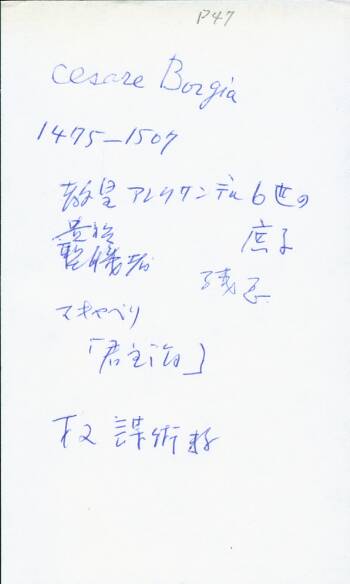 P47
Cesare Borgia
1475—1507
教皇アレクサンデル6世の
庶子
残忍
マキャベリ
「君主論」
権謀術数